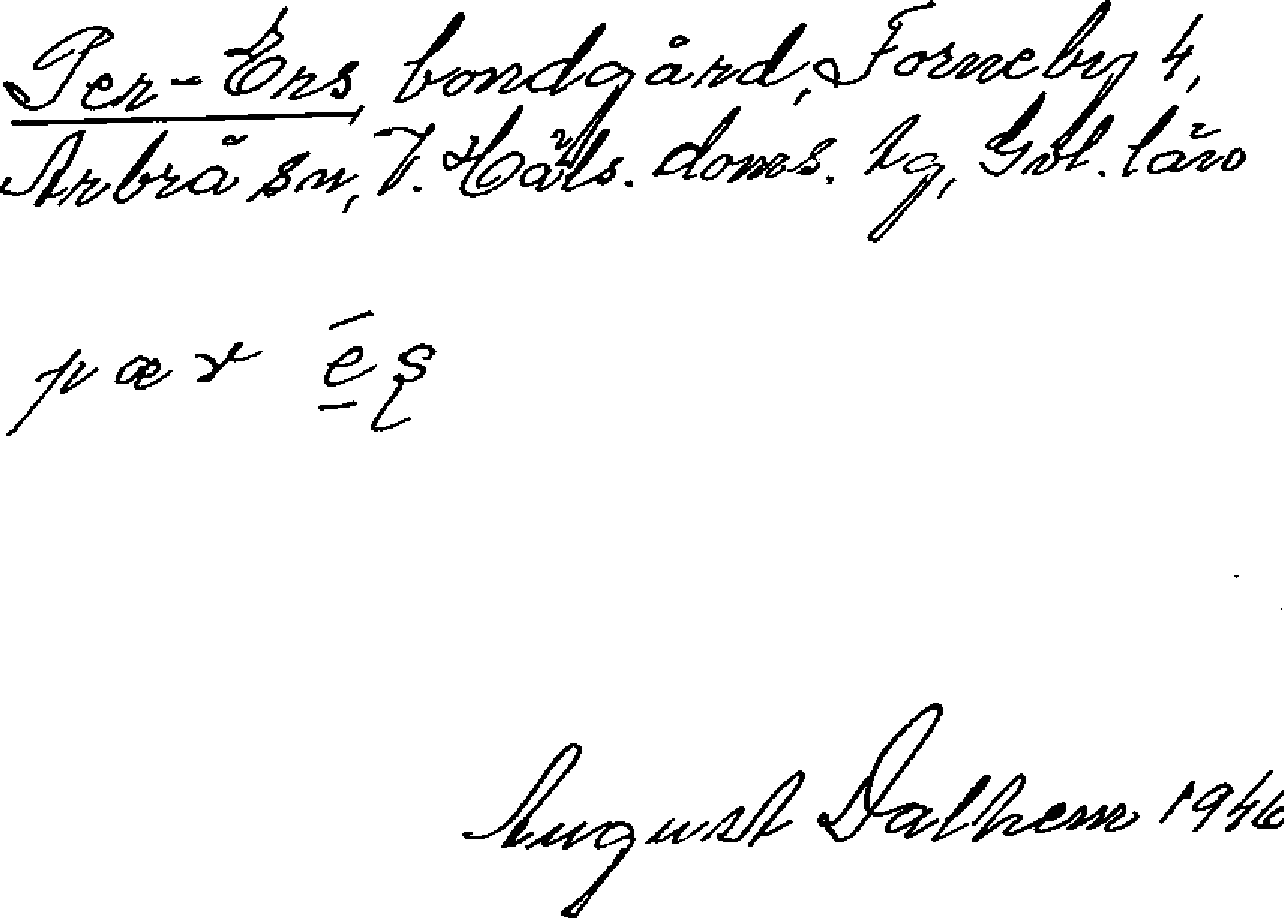 Per-Ers, bondgård, Forneby 4,
Arbrå sn, V. Häls. doms. tg, Gvl. län
pær ē̲ʂ
August Dalhem 1946